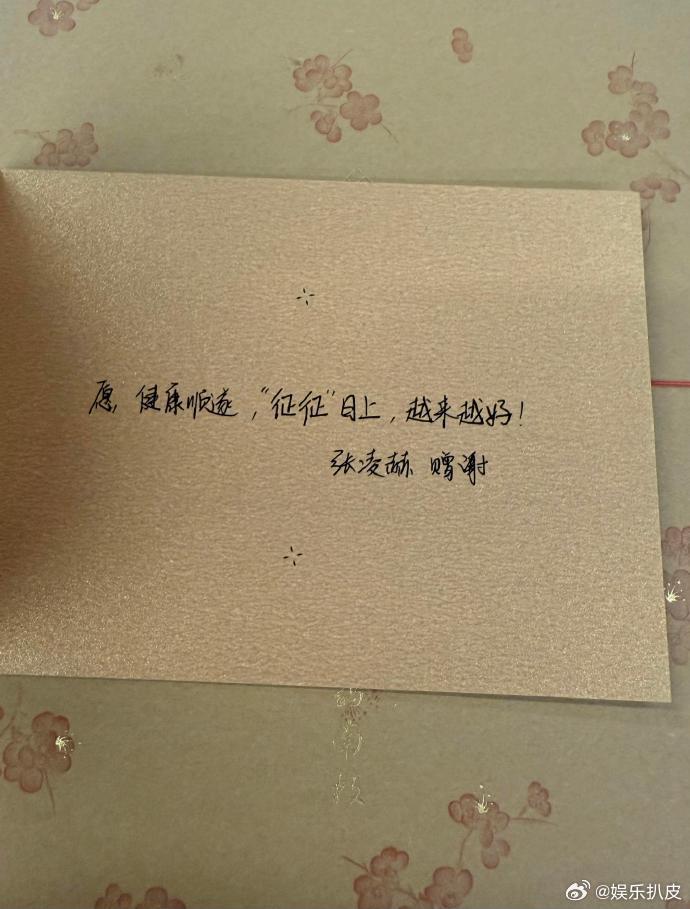 愿,健康顺遂,“征征”日上,越来越好!
张凌赫 赠谢
南枝
@娱乐扒皮